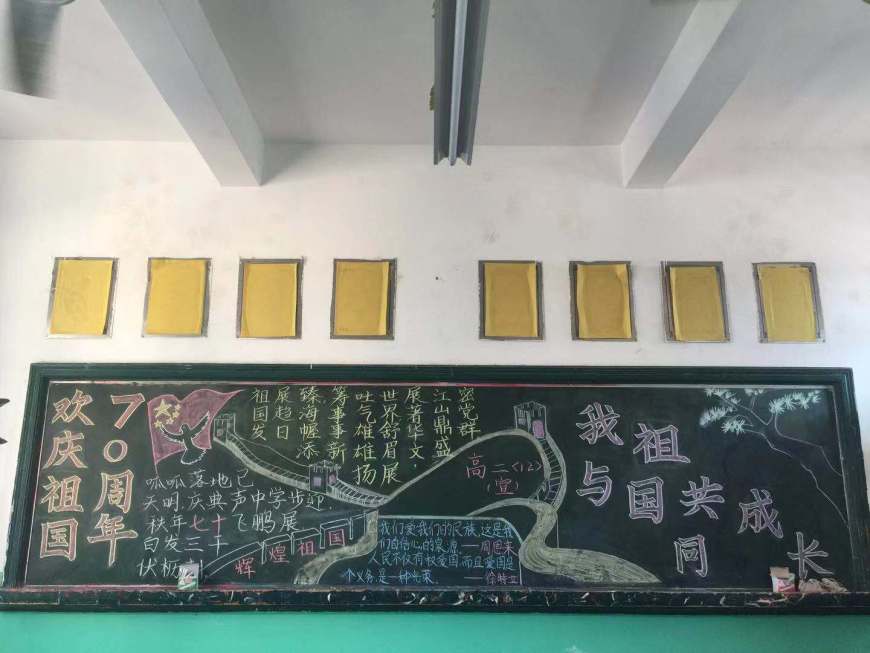 欢庆祖国
70周年
呱呱落地已
天明,庆典声中学步迎.
秩年七十飞鹏展
白发三千
伏枥
辉煌祖国
密党群
江山鼎盛
展著华文,
世界舒眉展
吐气雄雄扬
筹事事新
臻海幄添
展超日
祖国发
高二<12>
(宣)
我们爱我们的民族,这是我
们自信心的泉源.——周恩来
人民不仅有权爱国,而且爱国是
个义务,是一种光荣.——徐特立
我与祖国共同成长